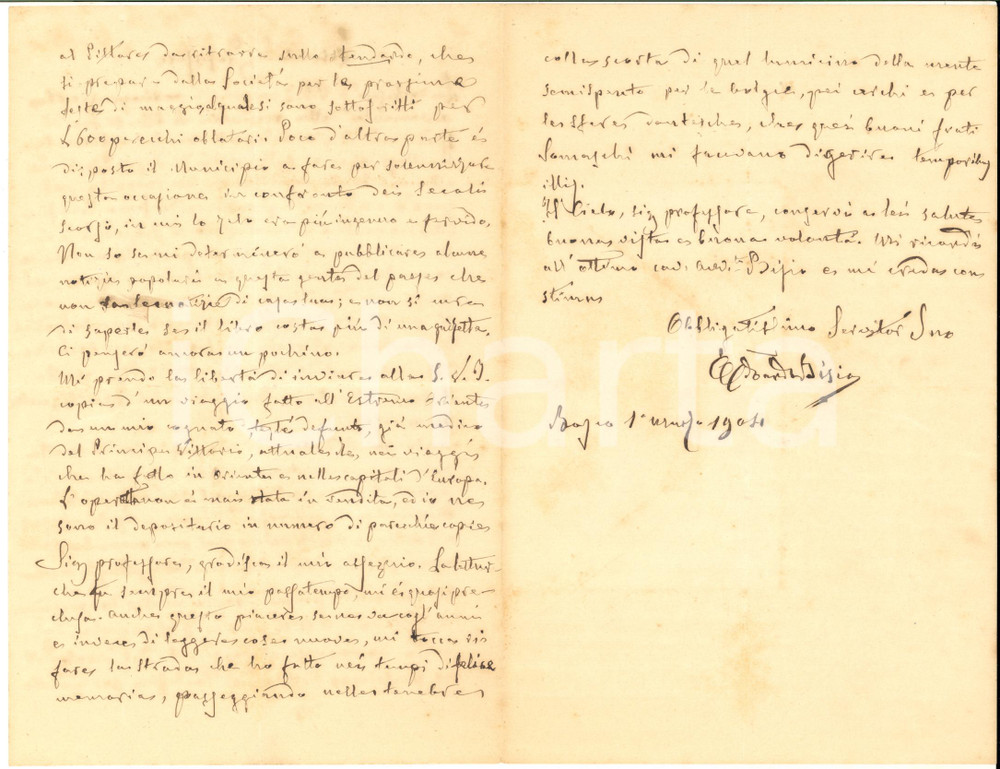 al Pittore da ritrarre sullo stendardo, che
si prepara dalla Società per le prossime
feste di maggio, al quale si sono sottoscritti per
£ 600 parecchi oblatori. Poco d'altra parte è
disposto il Municipio a fare per solennizzare
questa occasione in confronto dei Secoli
scorsi, in cui lo zelo era più ingenuo e fervido.
Non so se mi determinerò a pubblicare alcune
notizie popolari a questa gente del paese che
non sa le notizie di casa sua; e non si cura
di saperle se il libro costa più di una
Ci penserò ancora un pochino.
Mi prendo la libertà di inviare alla S. V. I.
copia d'un viaggio fatto all'Estremo Oriente
da un mio cognato, testè defunto, già medico
del Principe Vittorio, attuale Re, nei viaggi
che ha fatto in Oriente e nelle capitali d'Europa.
L'opera non è mai stata in vendita, ed io ne
sono il depositario in numero di parecchie copie
Sig professore, gradisca il mio ossequio. La lettura
che fu sempre il mio passatempo, mi è quasi pre-
clusa. Anche questo piacere se ne va cogl'anni
e invece di leggere cose nuove, mi tocca ri-
fare la strada che ho fatto nei tempi di felice
memoria, passeggiando nelle tenebre
colla scorta di quel lumicino della mente
semispento per le bolgie, pei cerchi e per
le sfere dantesche, che quei buoni frati
Somaschi mi facevano digerire temporibus
illis.
Il Cielo, sig professore, conservi a lei salute
buona vista e buona volontà. Mi ricordi
all'ottimo Bisio e mi creda con
stima
Obbligatissimo Servitor Suo
Edoardo Bisio
1° marzo 1904
iCharta